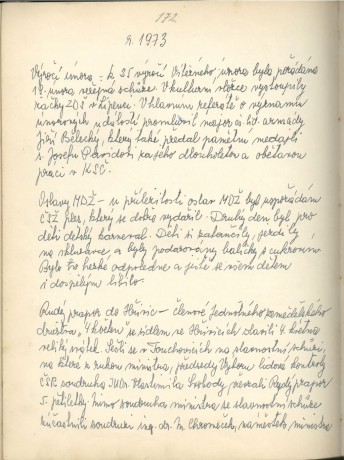 172
r. 1973
Výročí února - k 25. výročí Vítězného února byla pořádána
17. února veřejná schůze. V kulturní vložce vystoupily
žačky ZDŠ v Lipenci. V hlavním referátě o významu
únorových událostí promluvil major čs. lid. armády
Jiří Bělecký, který také předal pamětní medajli
s. Josefu za jeho dlouholetou a obětavou
práci v KSČ.
Oslavy MDŽ - u příležitosti oslav MDŽ byl uspořádán
ČSŽ ples, který se dobře vydařil. Druhý den byl pro
děti dětský karneval. Děti si zatančily, jezdily
na skluzavce, a byly podarovány balíčky s cukrovím.
Bylo to hezké odpoledne a jistě se všem dětem
i dospělým líbilo.
Rudý prapor do - členové Jednotného zemědělského
družstva, se sídlem ve slavili 4. května
veliký svátek. Sešli se v Touchovicích na slavnostní schůzi,
na které z rukou ministra, předsedy Výboru lidové kontroly
ČSR soudruha Vlastimila Svobody, převzali Rudý prapor
5. pětiletky. Mimo soudruha ministra se slavnostní schůze
zúčastnili soudruzi ing. dr. M. náměstek ministra